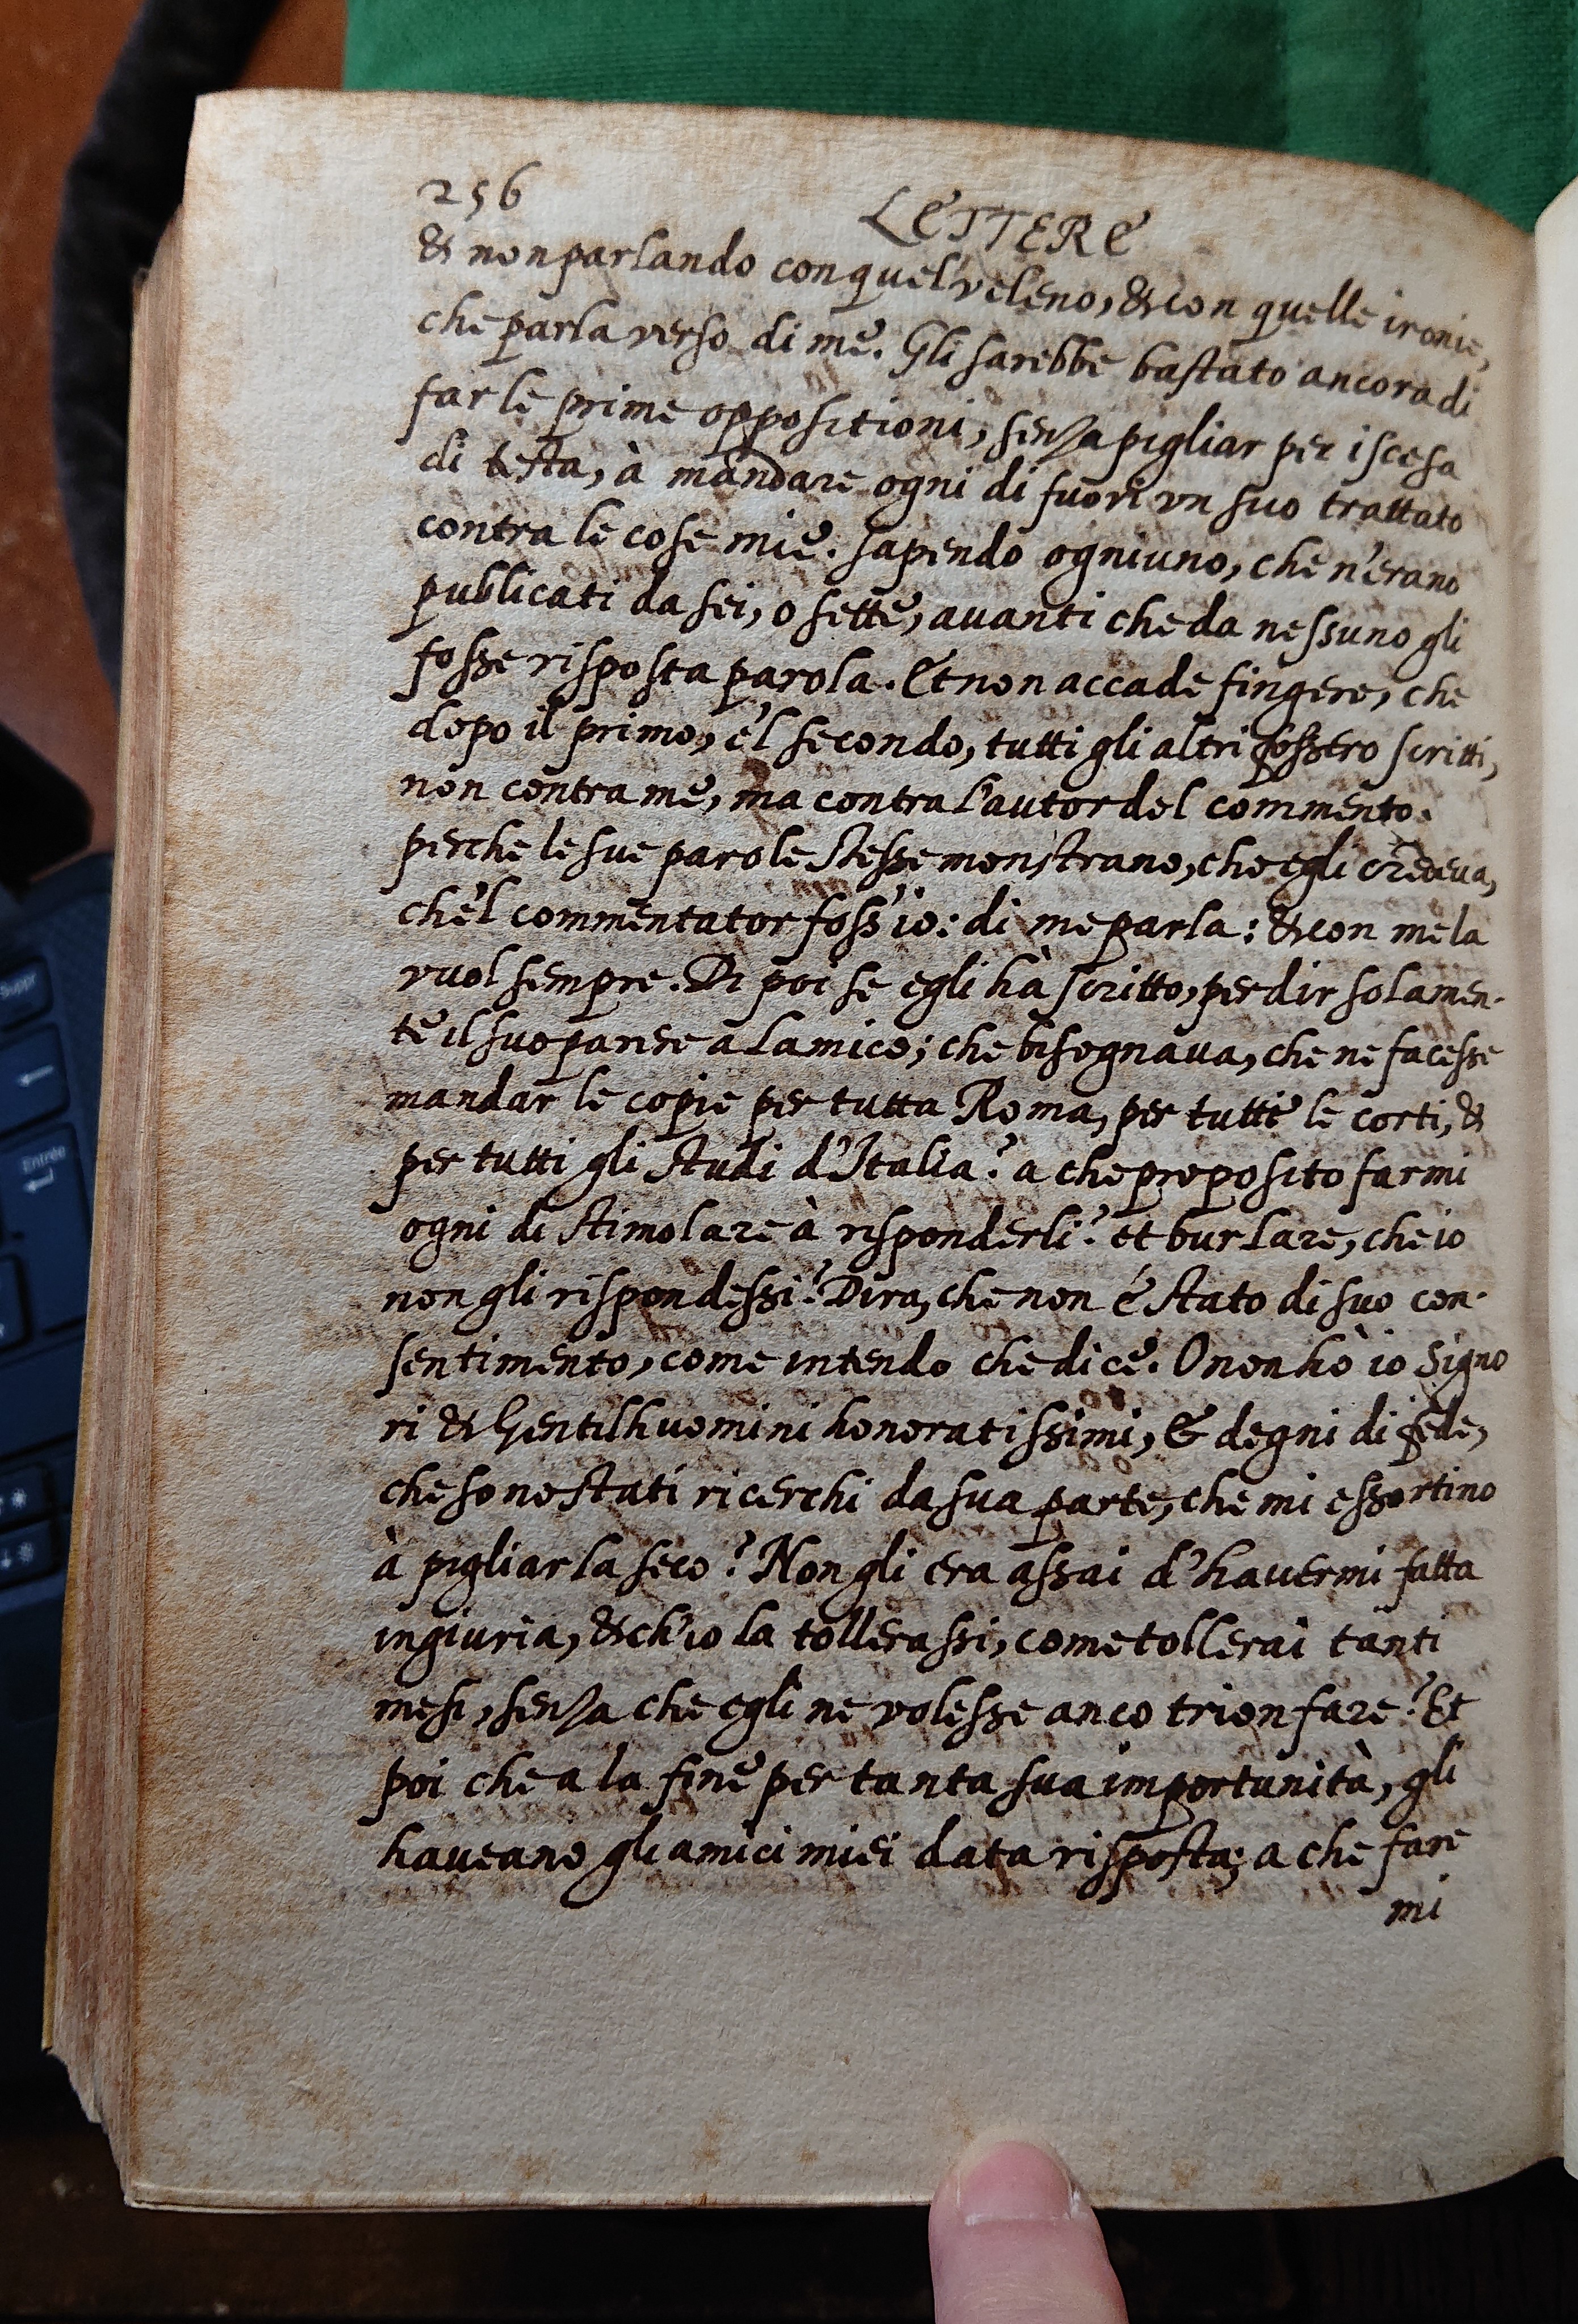 256
LETTERE
& non parlando con quel veleno, & con quelle ironie,
che parla verso di me. Gli sarebbe bastato ancora di
far le prime oppositioni, senza pigliar per iscesa
di testa, à mandare ogni di fuori un suo trattato
contra le cose mie. sapendo ogniuno, che n'erano
publicati da sei, o sette, avanti che da nessuno gli
fosse risposta parola. Et non accade fingere, che
dopo il primo, e'l secondo, tutti gli altri fossero scritti,
non contra me, ma contra l'autor del commento.
perche le sue parole stesse monstrano, che egli credeva,
che'l commentator foss'io: di me parla: & con me la
vuol sempre. Di poi se egli hà scritto, per dir solamen-
te il suo parere a l amico; che bisognava, che ne facesse
mandar le copie per tutta Roma, per tutte le corti, &
per tutti gli studi d'Italia? a che proposito farmi
ogni di stimolare à risponderli? et burlare, che io
non gli rispondessi? Dira, che non é stato di suo con-
sentimento, come intendo che dice. O non hò io Signo
ri & Gentilhuomini honoratissimi, & degni di fede,
che sono stati ricerchi da sua parte, che mi essortino
à pigliarla seco? Non gli era assai d'havermi fatta
ingiuria, & ch'io la tollerassi, come tollerai tanti
mesi, senza che egli ne volesse anco trionfare? Et
poi che a la fine per tanta sua importunità, gli
haveano gli amici miei data risposta; a che fare
mi